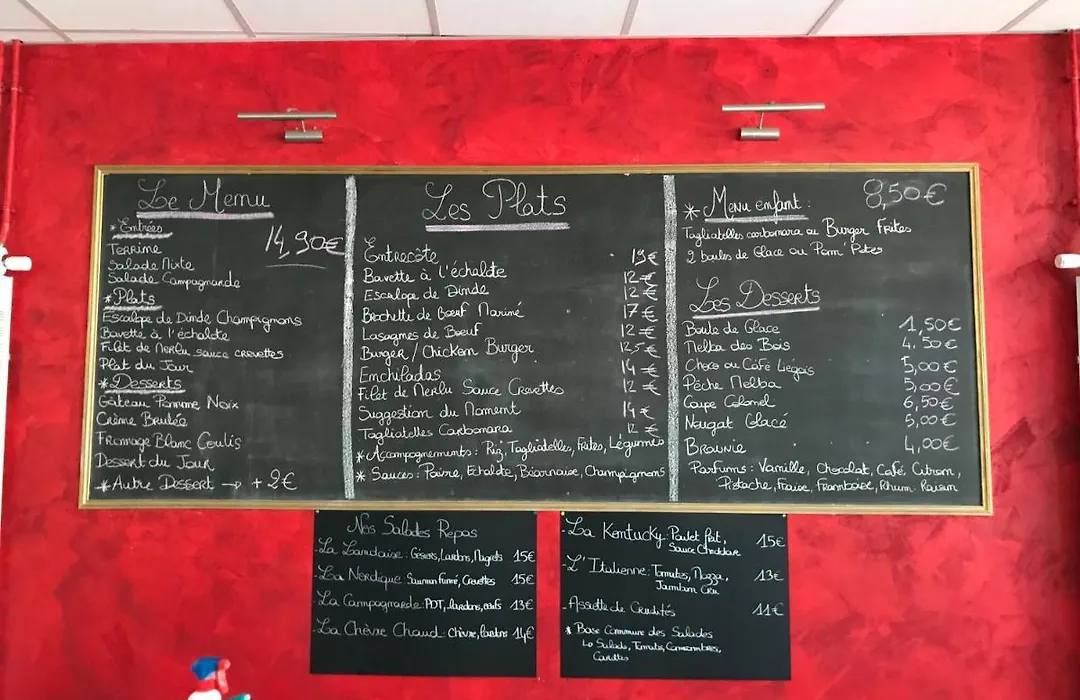 Le Menu
14,90€
* Entrées
Terrine
Salade Mixte
Salade Campagnarde
* Plats
Escalope de Dinde Champignons
Bavette à l'échalote
Filet de Merlu sauce crevettes
Plat du Jour
* Desserts
Gâteau Pomme Noix
Crème Brulée
Fromage Blanc Coulis
Dessert du Jour
* Autre Dessert → + 2€
Les Plats
Entrecôte 19€
Bavette à l'échalote 12€
Escalope de Dinde 12€
Brochette de Bœuf Mariné 17€
Lasagnes de Bœuf 12€
Burger / Chicken Burger 12,5€
Enchiladas 14€
Filet de Merlu Sauce Crevettes 12€
Suggestion du Moment 14€
Tagliatelles Carbonara 12€
* Accompagnements : Riz, Tagliatelles, Frites, Légumes
* Sauces : Poivre, Echalote, Béarnaise, Champignons
* Menu enfant : 8,50€
Tagliatelles carbonara ou Burger Frites
2 boules de Glace ou Pom' Potes
Les Desserts
Boule de Glace 1,50€
Melba des Bois 4.50€
Choco ou Café Liégois 5,00€
Pêche Melba 5,00€
Coupe Colonel 6,50€
Nougat Glacé 5,00€
Brownie 4,00€
Parfums : Vanille, Chocolat, Café, Citron,
Pistache, Fraise, Framboise, Rhum. Raisin
Nos Salades Repas
- La Landaise : Gésiers, Lardons, Magrets 15€
- La Nordique : Saumon fumé, Crevettes 15€
- La Campagnarde : PDT, lardons, œufs 13€
- La Chèvre Chaud : Chèvre, lardons 14€
- La Kentucky : Poulet frit, 15€
Sauce Cheddar
- L'Italienne : Tomates, Mozza, 13€
Jambon Cru
- Assiette de Crudités 11€
* Base Commune des Salades
Salade, Tomate, Concombres,
Carottes